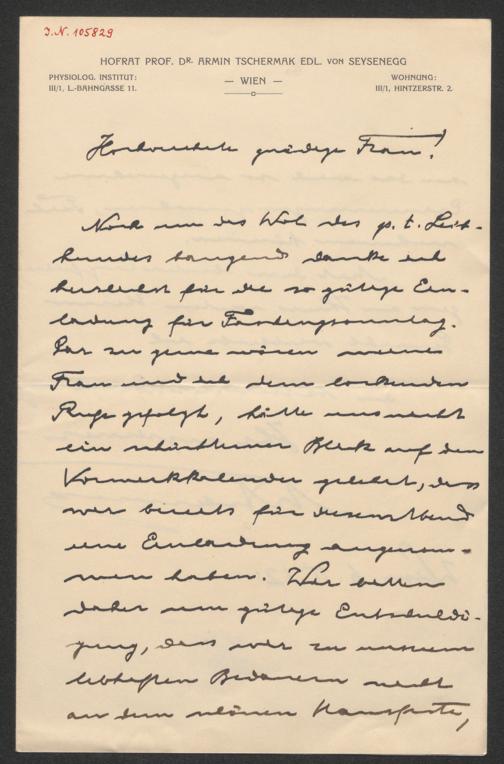 J.N. 105829
HOFRAT PROF. DR. ARMIN TSCHERMAK EDL. VON SEYSENEGG
PHYSIOLOG. INSTITUT:
III/1, L.-BAHNGASSE 11.
— WIEN —
WOHNUNG:
III/1, HINTZERSTR. 2.
Hochverehrte gnädige Frau!
Noch um das Wol des p. t. Leib-
hundes bangend danke ich
herzlichst für die so gütige Ein-
ladung für Faschingsonntag.
Gar zu gerne wären meine
Frau und ich dem lockenden
Rufe gefolgt, hätte uns nicht
ein schüchterner Blick auf den
Vormerkkalender gelehrt, dass
wir bereits für diesen Abend
eine Einladung angenom-
men haben. Wir bitten
daher um gütige Entschuldi-
gung, dass wir zu unserem
lebhaften Bedauern nicht
an dem schönen Hausfeste,